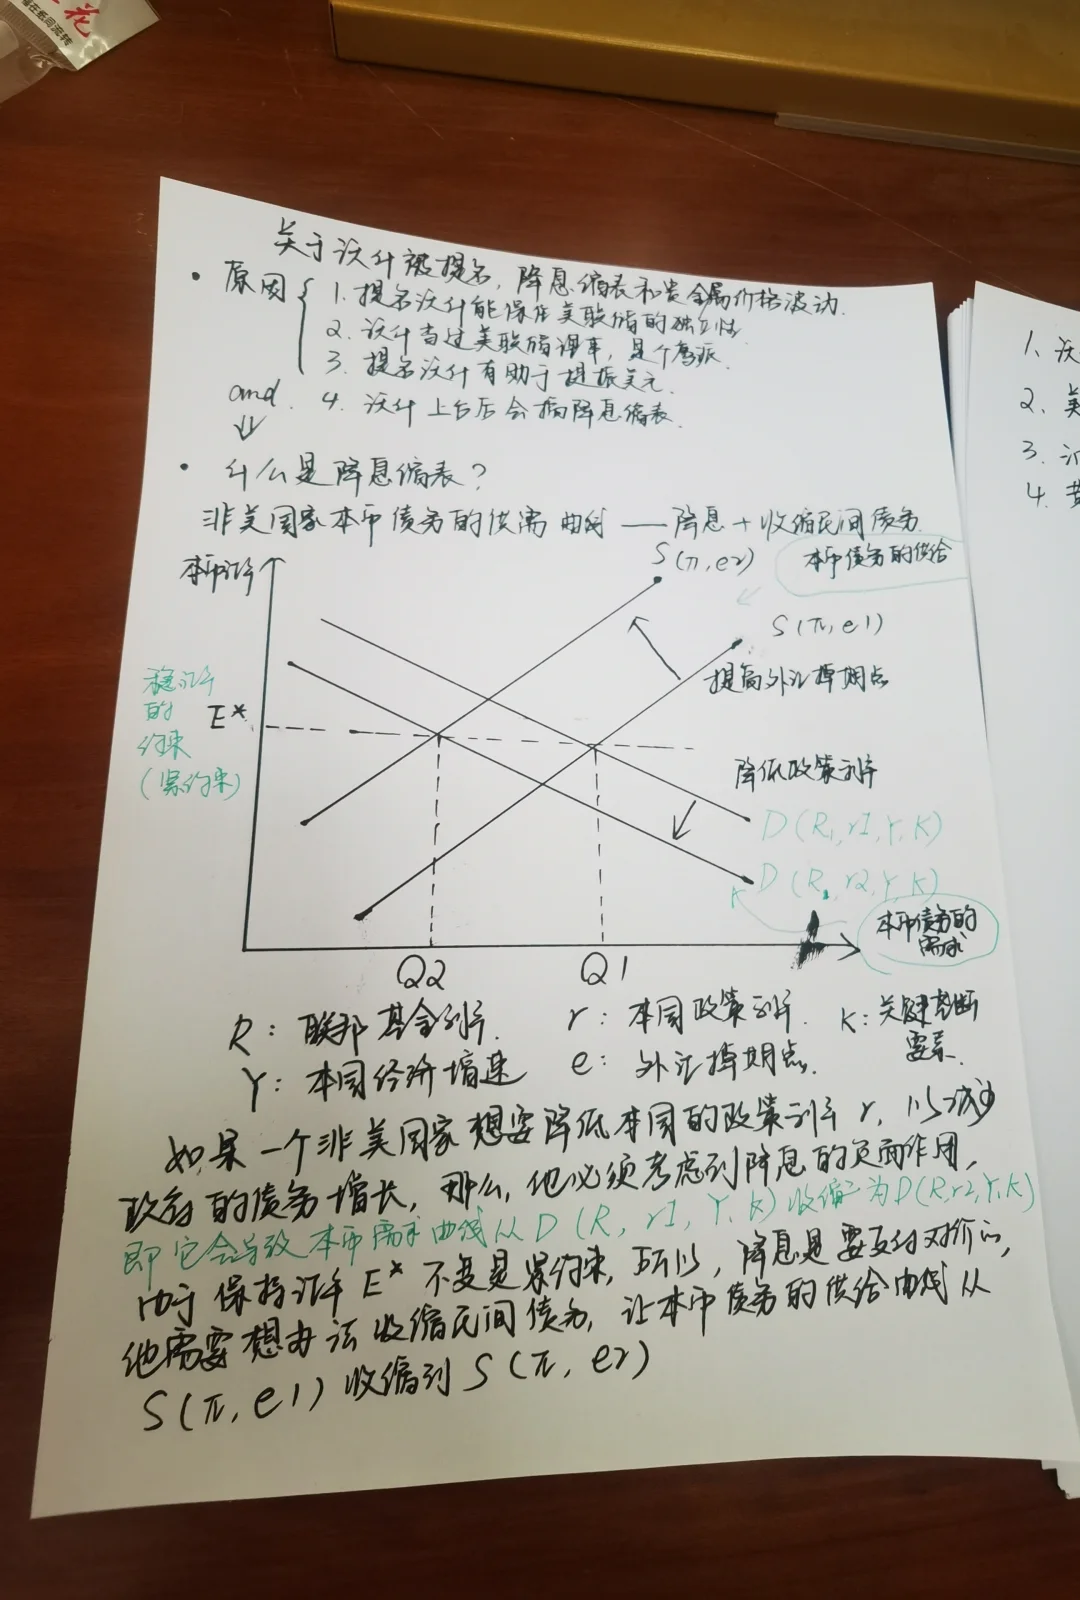 花
在纸间流转
关于沃什被提名，降息缩表和贵金属价格波动.
• 原因
1. 提名沃什能保住美联储的独立性.
2. 沃什当过美联储理事，是个鹰派.
3. 提名沃什有助于提振美元.
and. 4. 沃什上台后会搞降息缩表.
• 什么是降息缩表？
非美国家本币债务的供需曲线 —— 降息+收缩民间债务.
本币汇率
S(π, e2)
本币债务的供给
S(π, e1)
提高外汇掉期点
稳汇率
的
约束
(紧约束)
E*
降低政策利率
D(R, r1, Y, K)
D(R, r2, Y, K)
本币债务的
需求
Q2 Q1
R: 联邦基金利率. r: 本国政策利率. K: 关键判断
要素.
Y: 本国经济增速 e: 外汇掉期点.
如果一个非美国家想要降低本国的政策利率 r, 以减少
政府的债务增长，那么，他必须考虑到降息的负面作用，
即它会导致本币需求曲线从D(R, r1, Y, K)收缩为D(R, r2, Y, K)
由于保持汇率E*不变是紧约束，所以，降息是要支付对价的，
他需要想办法收缩民间债务，让本币债务的供给曲线从
S(π, e1)收缩到S(π, e2)
1、沃
2、美
3.
4.